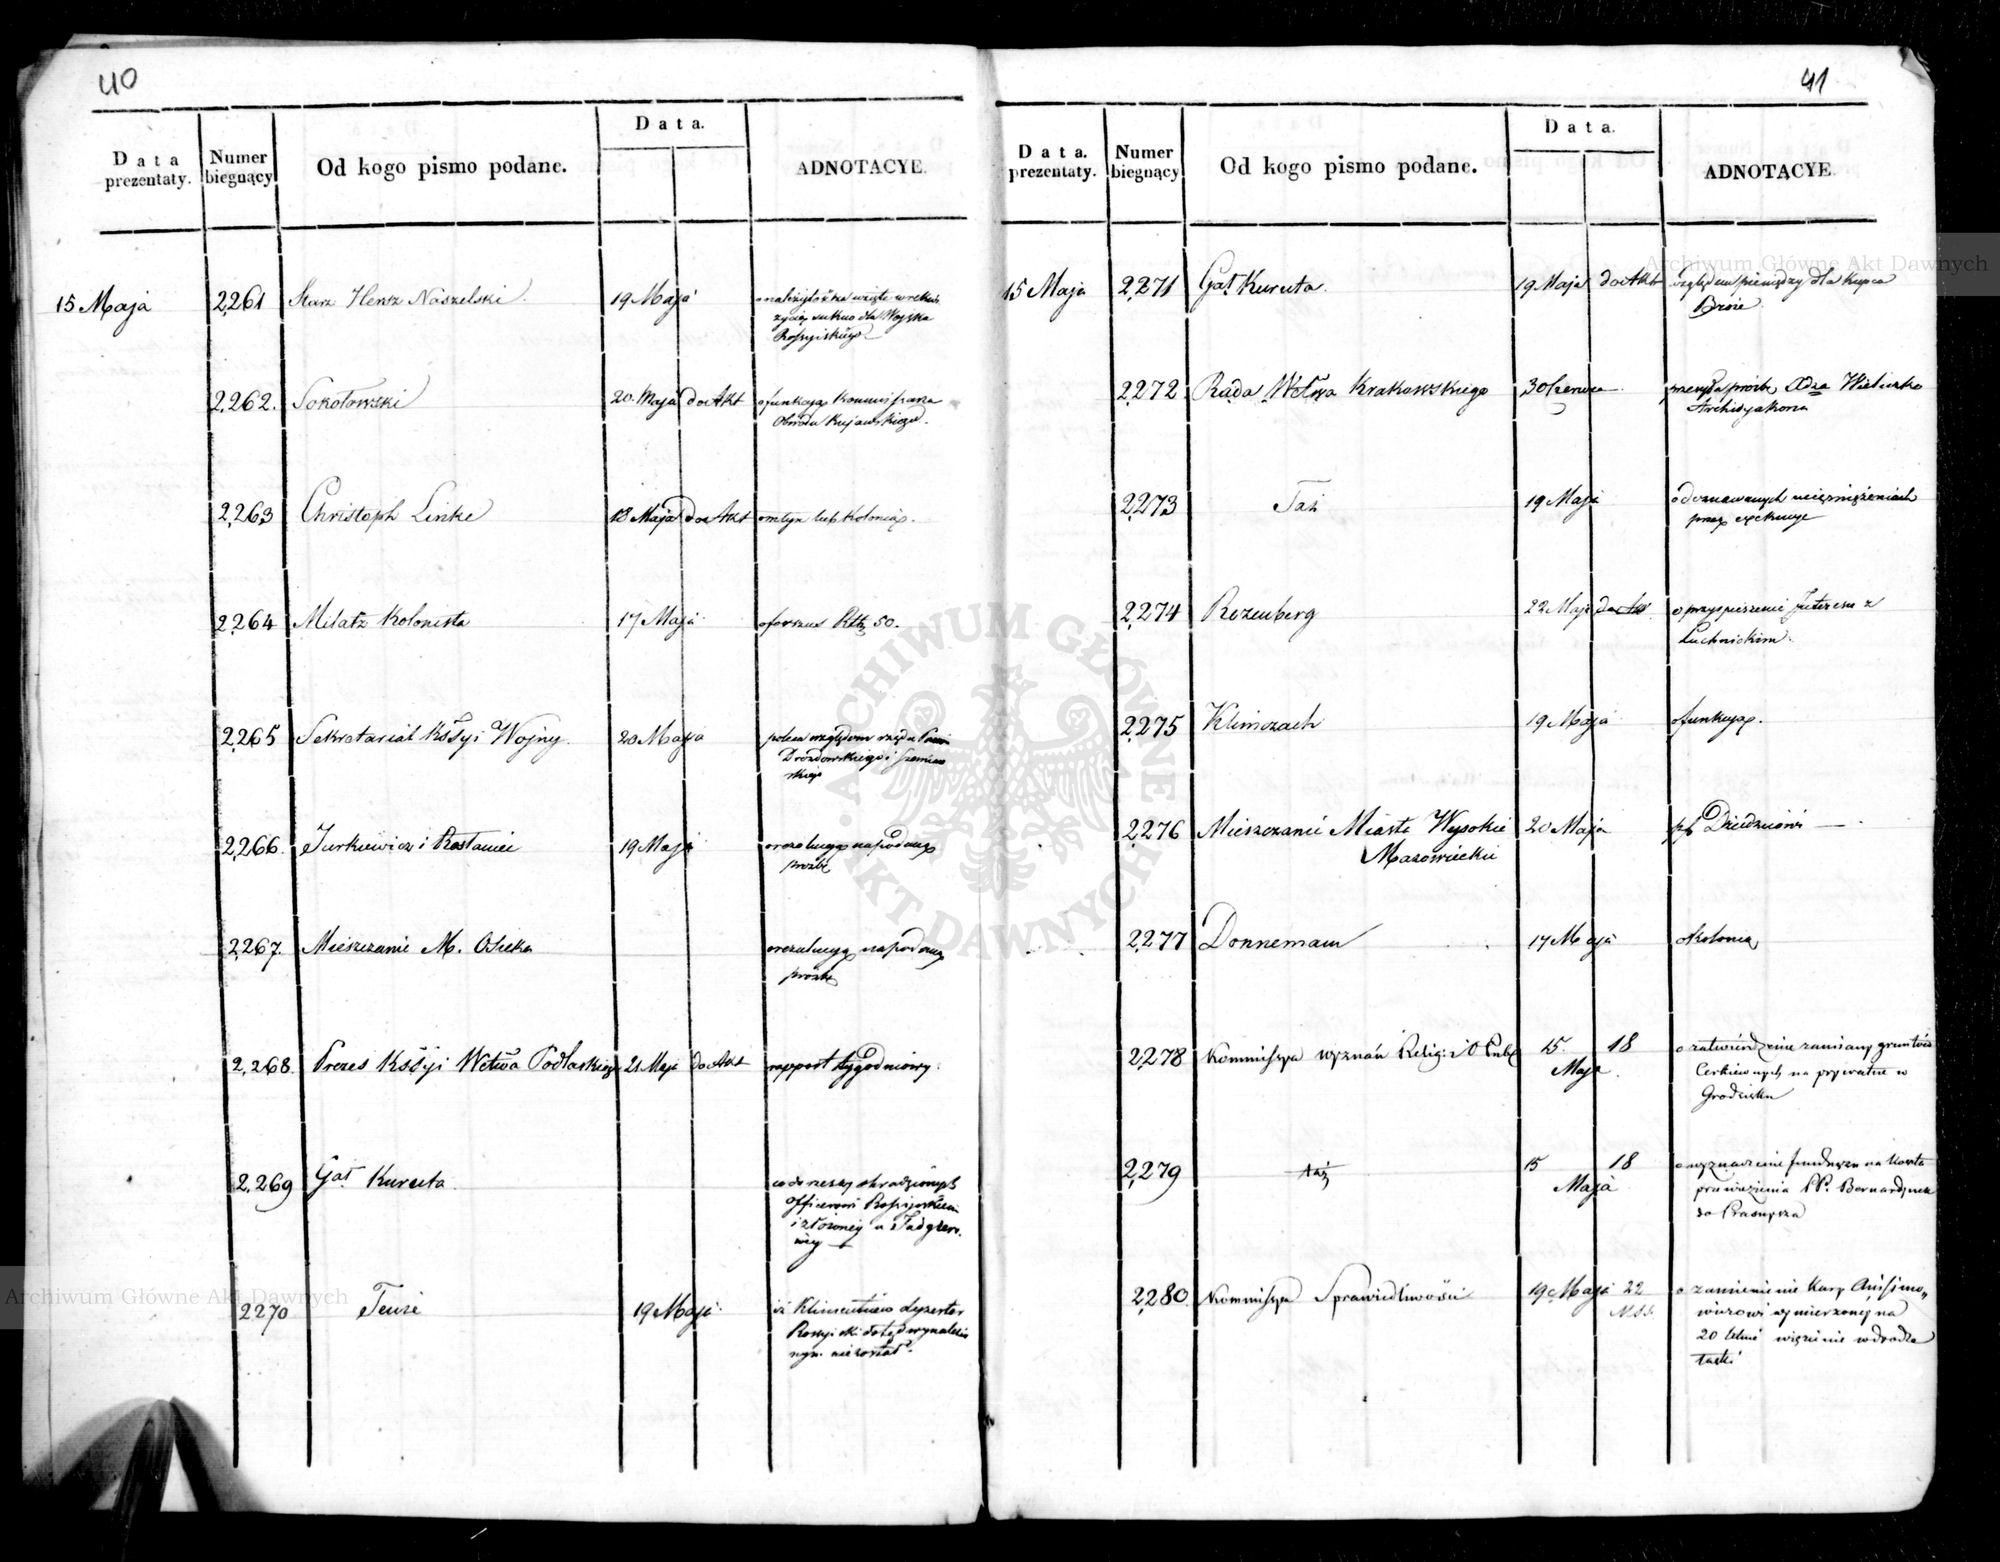 40
Data prezentaty.
Numer biegnący
Od kogo pismo podane.
Data.
ADNOTACYE.
15 Maja 2,261 Starz Hersz Naszelski. 19 Maja o należytość za wzięte w
sukno dla Wojska
Rossyiskiego
2,262. Sokołowski 20. Maja do Akt o funkcyą Kommissarza
Obwodu Kujawskiego.
2,263 Christoph Linke 18 Maja do Akt o młyn lub Kolonią.
2,264 Milatz Kolonista 17 Maja o forszus 50.
2,265 Sekretariat Kssyi Wojny. 20 Maja względom
Drozdowskiego i
skiego
2,266. Jurkiewicz i 19 Maja o rezolucyą na podaną
prozbę
2,267. Mieszczanie M. Osieka o rezolucyą na podaną
prozbę
2,268. Prezes Kssyi Wctwa Podlaskiego 21 Maja do Akt rapport tygodniowy.
2,269 Gał Kuruta co do rzeczy skradzionych
Officerowi Rossyiskiemu
i złożoney u
2270 Tenże 19 Maja iż dezerter
Rossyiski dotąd wynalezio
nym nie został.
41
Data. prezentaty.
Numer biegnący
Od kogo pismo podane.
Data.
ADNOTACYE
15 Maja 2,271 Gał Kuruta. 19 Maja do Akt względem pieniędzy dla Kupca
2,272 Rada Wctwa Krakowskiego 30 Czerwca przesyła prozbę Xdza
Archidyakona
2,273 Taż 19 Maja o doznawanych uciemiężeniach
przez
2,274 Rozenberg 22 Maja do Akt o przyspieszenie Interesu z
Luchnickim.
2,275 Klimczach 19 Maja o funkcyą.
2,276 Mieszczanie Miasta Wysokie 20 Maja Dziedzicowi
Mazowieckie
2,277 Donnemann 17 Maja o Kolonią
2,278 Kommissya wyznań Relig: i O Pub: 15. 18 o zatwierdzenie zamiany gruntów
Maja Cerkiewnych na prywatne w
Grodzisku
2,279 taż 15 18 o wyznaczenie funduszu na koszta
Maja przewiezienia PP. Bernardynek
do Prasnysza
2,280. Kommissya Sprawiedliwości 19 Maja 22 o zamienienie Kary
wiczowi wymierzoney na
20 letnie więzienie w drodze
łaski
Archiwum Główne Akt Dawnych
Archiwum Główne Akt Dawnych
ARCHIWUM GŁÓWNE AKT DAWNYCH